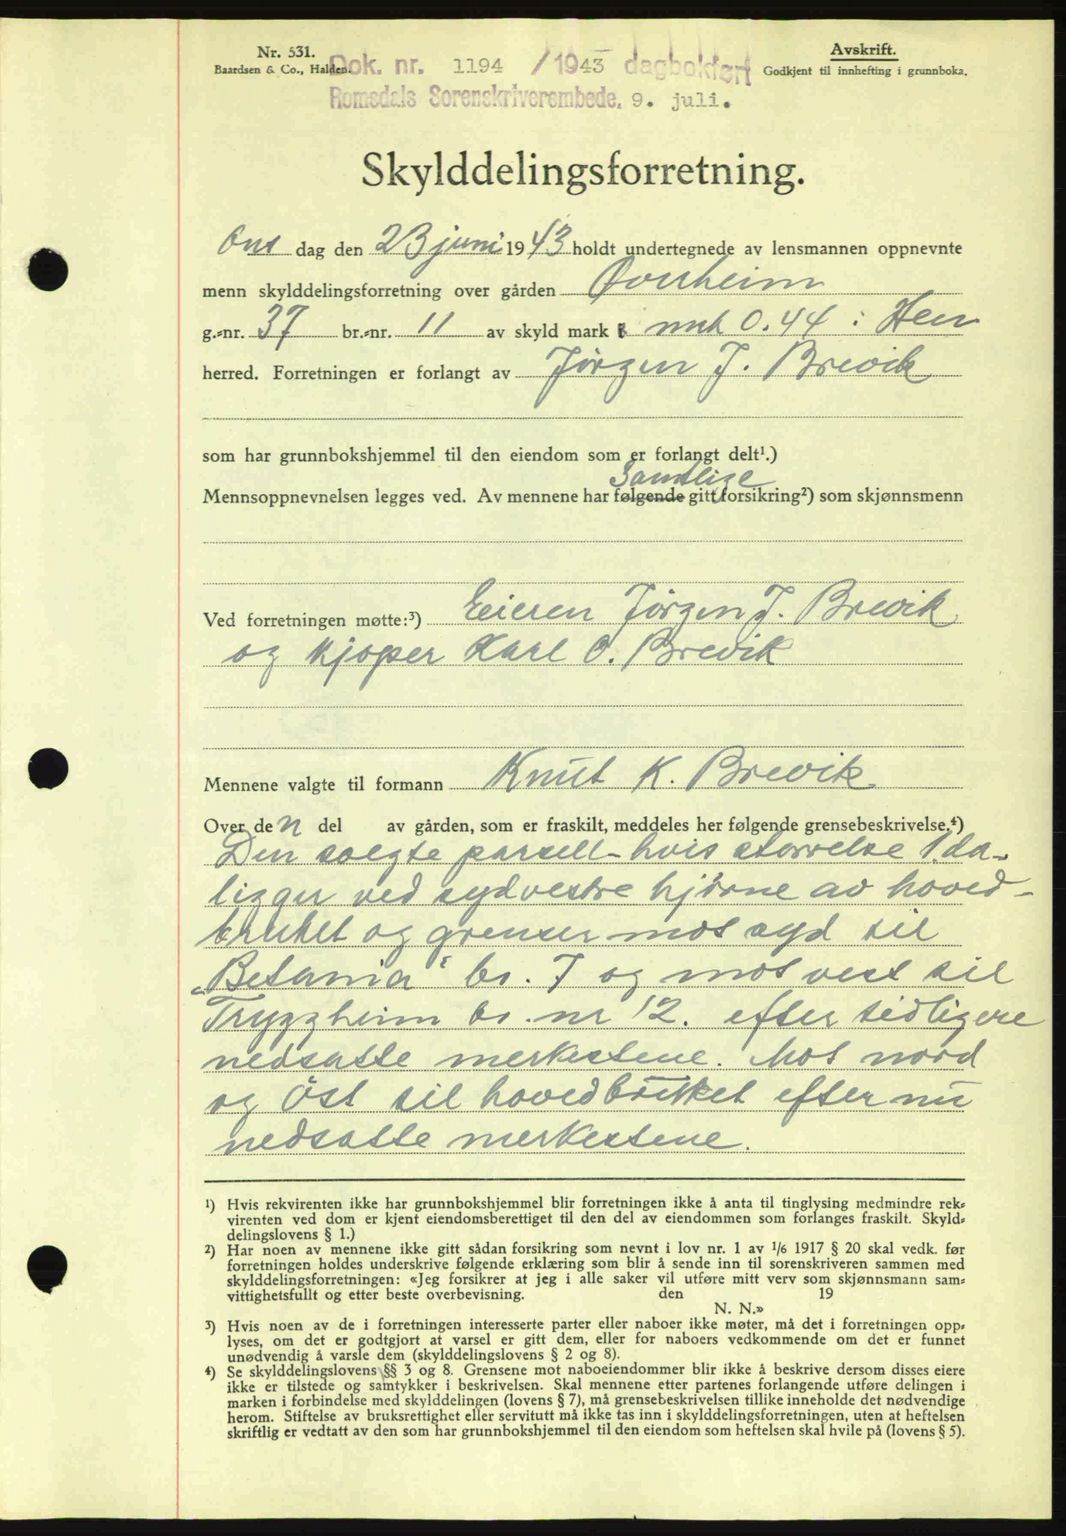 Nr. 531.
Baardsen & Co., Halden.
Dok. nr. 1194 /1943 dagbokført
Romsdals Sorenskriverembede. 9. juli.
Avskrift.
Godkjent til innhefting i grunnboka.
Skylddelingsforretning.
Ons dag den 23 juni 1943 holdt undertegnede av lensmannen oppnevnte
menn skylddelingsforretning over gården
g.-nr. 37 br.-nr. 11 av skyld mark mrk 0.44 i Hen
herred. Forretningen er forlangt av Jørgen J. Brevik
som har grunnbokshjemmel til den eiendom som er forlangt delt¹.)
Samtlige
Mennsoppnevnelsen legges ved. Av mennene har følgende gitt forsikring²) som skjønnsmenn
Ved forretningen møtte:³) Eieren Jørgen J. Brevik
og kjøper Karl O. Brevik
Mennene valgte til formann Knut K. Brevik
Over den del av gården, som er fraskilt, meddeles her følgende grensebeskrivelse.⁴)
Den solgte parsell – hvis størrelse 1 da.
ligger ved sydvestre hjørne av hoved-
bruket og grenser mot syd til
„Betania“ br. 7 og mot vest til
Tryggheim br. nr 12. efter tidligere
nedsatte merkestene. Mot nord
og öst til hovedbruket efter nu
nedsatte merkestene.
¹) Hvis rekvirenten ikke har grunnbokshjemmel blir forretningen ikke å anta til tinglysing medmindre rek-
virenten ved dom er kjent eiendomsberettiget til den del av eiendommen som forlanges fraskilt. Skyld-
delingslovens § 1.)
²) Har noen av mennene ikke gitt sådan forsikring som nevnt i lov nr. 1 av 1/6 1917 § 20 skal vedk. før
forretningen holdes underskrive følgende erklæring som blir å sende inn til sorenskriveren sammen med
skylddelingsforretningen: «Jeg forsikrer at jeg i alle saker vil utføre mitt verv som skjønnsmann sam-
vittighetsfullt og etter beste overbevisning. den 19
N. N.»
³) Hvis noen av de i forretningen interesserte parter eller naboer ikke møter, må det i forretningen opp-
lyses, om det er godtgjort at varsel er gitt dem, eller for naboers vedkommende om det er funnet
unødvendig å varsle dem (skylddelingslovens § 2 og 8).
⁴) Se skylddelingslovens §§ 3 og 8. Grensene mot naboeiendommer blir ikke å beskrive dersom disses eiere
ikke er tilstede og samtykker i beskrivelsen. Skal mennene etter partenes forlangende utføre delingen i
marken i forbindelse med skylddelingen (lovens § 7), må grensebeskrivelsen tillike inneholde det nødvendige
herom. Stiftelse av bruksrettighet eller servitutt må ikke tas inn i skylddelingsforretningen, uten at heftelsen
skriftlig er vedtatt av den som har grunnbokshjemmel til den eiendom som heftelsen skal hvile på (lovens § 5).